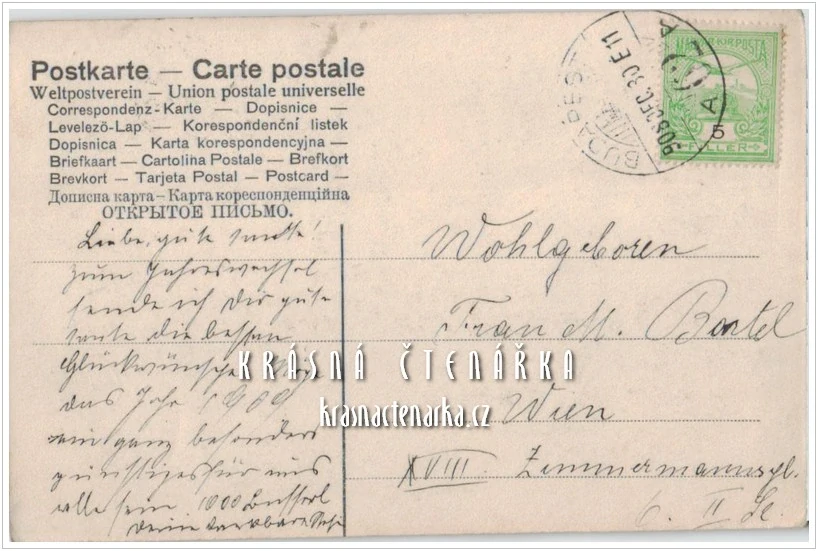 Postkarte — Carte postale
Weltpostverein — Union postale universelle
Correspondenz-Karte — Dopisnice —
Levelező-Lap — Korespondenční listek
Dopisnica — Karta korespondencyjna —
Briefkaart — Cartolina Postale — Brefkort
Brevkort — Tarjeta Postal — Postcard —
Дописна карта — Карта кореспонденційна
ОТКРЫТОЕ ПИСЬМО.
BUDAPEST
908 DEC. 30 E 11
MAGYAR KIR. POSTA
5
FILLÉR
Liebe, gute Tante!
zum Jahreswechsel
sende ich Dir gute
Tante die besten
Glückwünsche
das Jahr 1909
ein ganz besonders
günstiges für uns
alle sein. 1000 Busserl
Deine dankbare
Wohlgeboren
Frau M. Bartel
Wien
XVIII. Zimmermanngl.
6. II
KRÁSNÁ ČTENÁŘKA
krasnactenarka.cz